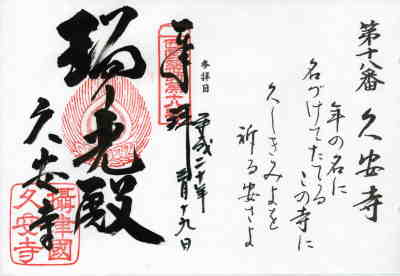 第十八番 久安寺
年の名に
名づけてたてる
この寺に
久しきみよを
祈る安さよ
参拝日
平成二十年
三月十九日
奉拝
光殿
久安寺
攝津國
久安寺